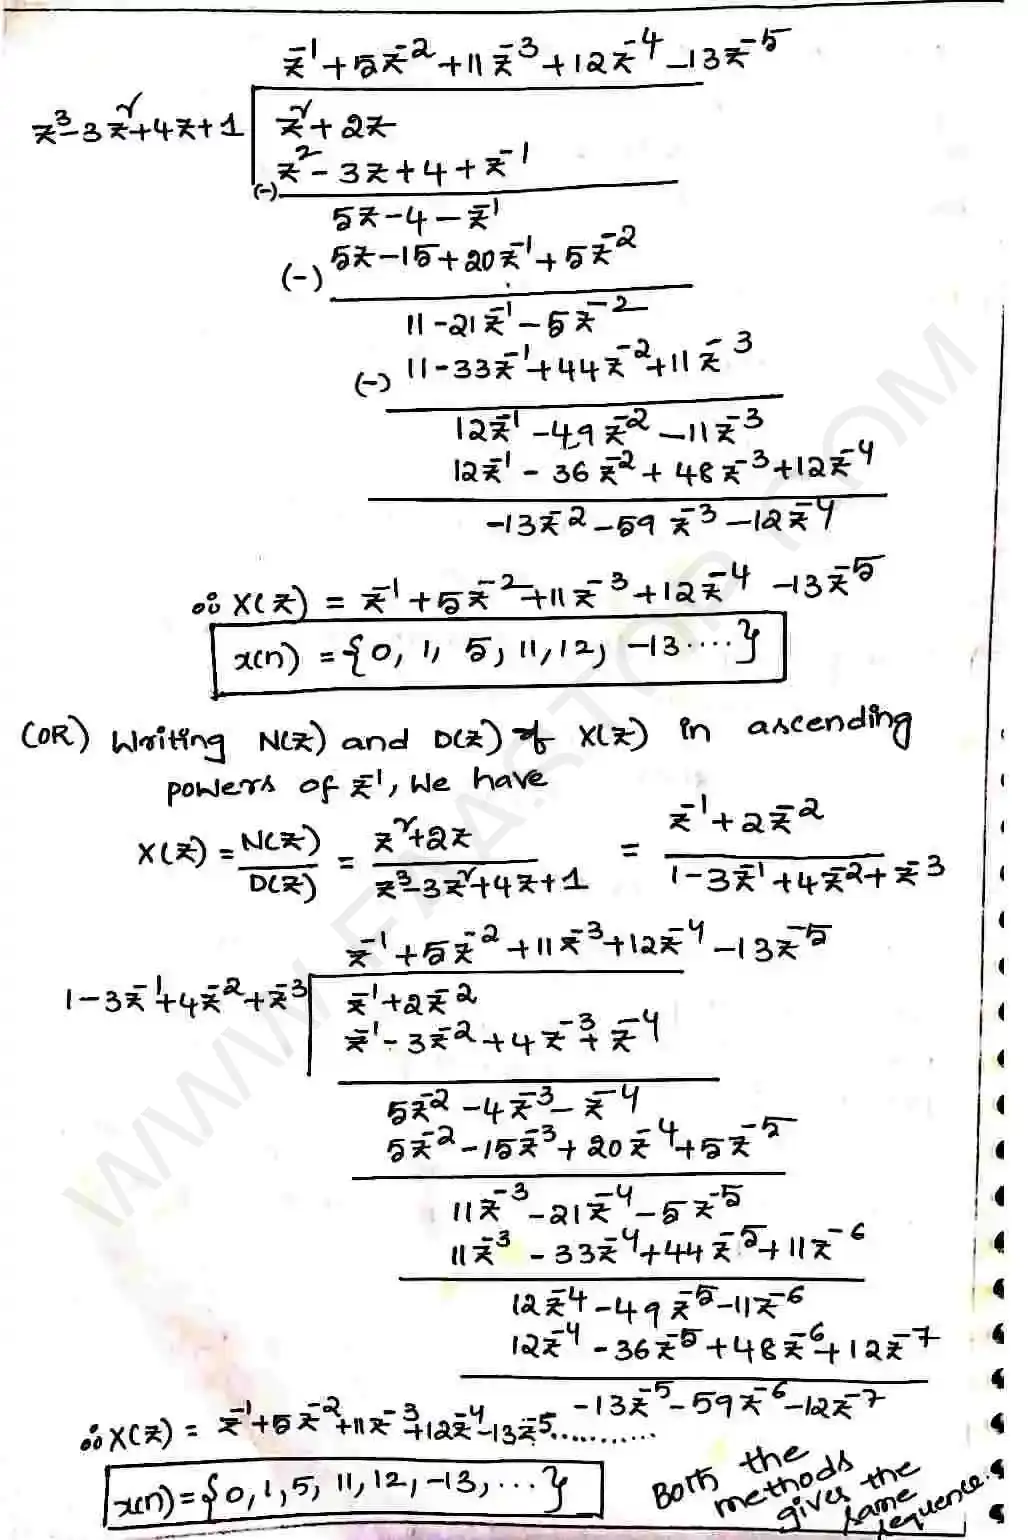 z⁻¹ + 5z⁻² + 11z⁻³ + 12z⁻⁴ - 13z⁻⁵
z³ - 3z² + 4z + 1 | z² + 2z
z² - 3z + 4 + z⁻¹
(-)
5z - 4 - z⁻¹
5z - 15 + 20z⁻¹ + 5z⁻²
(-)
11 - 21z⁻¹ - 5z⁻²
(-) 11 - 33z⁻¹ + 44z⁻² + 11z⁻³
12z⁻¹ - 49z⁻² - 11z⁻³
12z⁻¹ - 36z⁻² + 48z⁻³ + 12z⁻⁴
-13z⁻² - 59z⁻³ - 12z⁻⁴
∴ X(z) = z⁻¹ + 5z⁻² + 11z⁻³ + 12z⁻⁴ - 13z⁻⁵
x(n) = {0, 1, 5, 11, 12, -13 ....}
(OR) Writing N(z) and D(z) of X(z) in ascending
powers of z⁻¹, We have
X(z) = N(z)/D(z) = (z² + 2z)/(z³ - 3z² + 4z + 1) = (z⁻¹ + 2z⁻²)/(1 - 3z⁻¹ + 4z⁻² + z⁻³)
z⁻¹ + 5z⁻² + 11z⁻³ + 12z⁻⁴ - 13z⁻⁵
1 - 3z⁻¹ + 4z⁻² + z⁻³ | z⁻¹ + 2z⁻²
z⁻¹ - 3z⁻² + 4z⁻³ + z⁻⁴
5z⁻² - 4z⁻³ - z⁻⁴
5z⁻² - 15z⁻³ + 20z⁻⁴ + 5z⁻⁵
11z⁻³ - 21z⁻⁴ - 5z⁻⁵
11z⁻³ - 33z⁻⁴ + 44z⁻⁵ + 11z⁻⁶
12z⁻⁴ - 49z⁻⁵ - 11z⁻⁶
12z⁻⁴ - 36z⁻⁵ + 48z⁻⁶ + 12z⁻⁷
-13z⁻⁵ - 59z⁻⁶ - 12z⁻⁷
∴ X(z) = z⁻¹ + 5z⁻² + 11z⁻³ + 12z⁻⁴ - 13z⁻⁵...........
x(n) = {0, 1, 5, 11, 12, -13, ...}
Both the
methods
gives the
same
sequence.